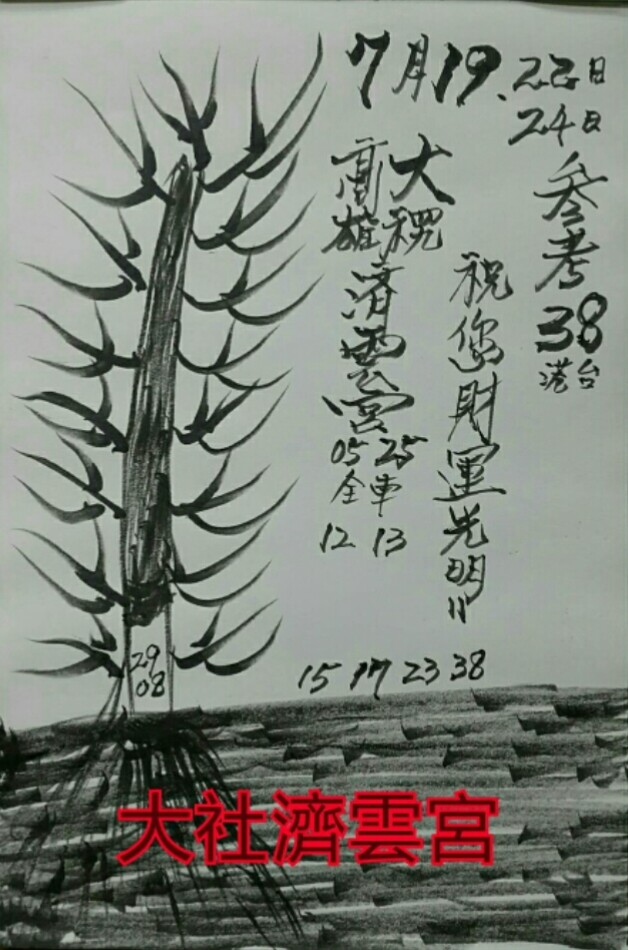 7月19.22日
24日
參考
38
港台
祝您財運光明!!
高雄
大稷
濟雲宮
05 25
全車
12 13
29
08
15 17 23 38
大社濟雲宮